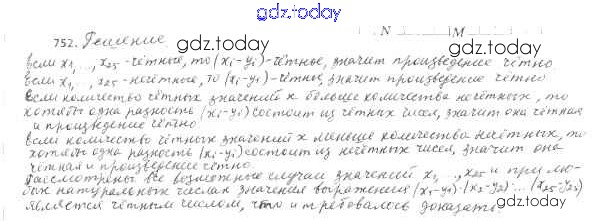 gdz.today
752. Решение
N M
если x₁, ..., x₂₅ - чётные, то (xᵢ-yᵢ)-чётное, значит произведение чётно
если x₁, ..., x₂₅ - нечётные, то (xᵢ-yᵢ)-чётные, значит произведение чётно
если количество чётных значений x больше количества нечётных, то
хотябы одна разность (xᵢ-yᵢ) состоит из чётных чисел, значит она чётная
и произведение чётно
если количество чётных значений x меньше количества нечётных, то
хотябы одна разность (xᵢ-yᵢ) состоит из нечётных чисел, значит она
чётная и произведение чётно.
Рассмотрены все возможные случаи значений x₁, ..., x₂₅ и при лю-
бых натуральных числах значения выражения (x₁-y₁)·(x₂-y₂)·...·(x₂₅-y₂₅)
является чётным числом, что и требовалось доказать.
gdz.today
gdz.today
gdz.today
gdz.today